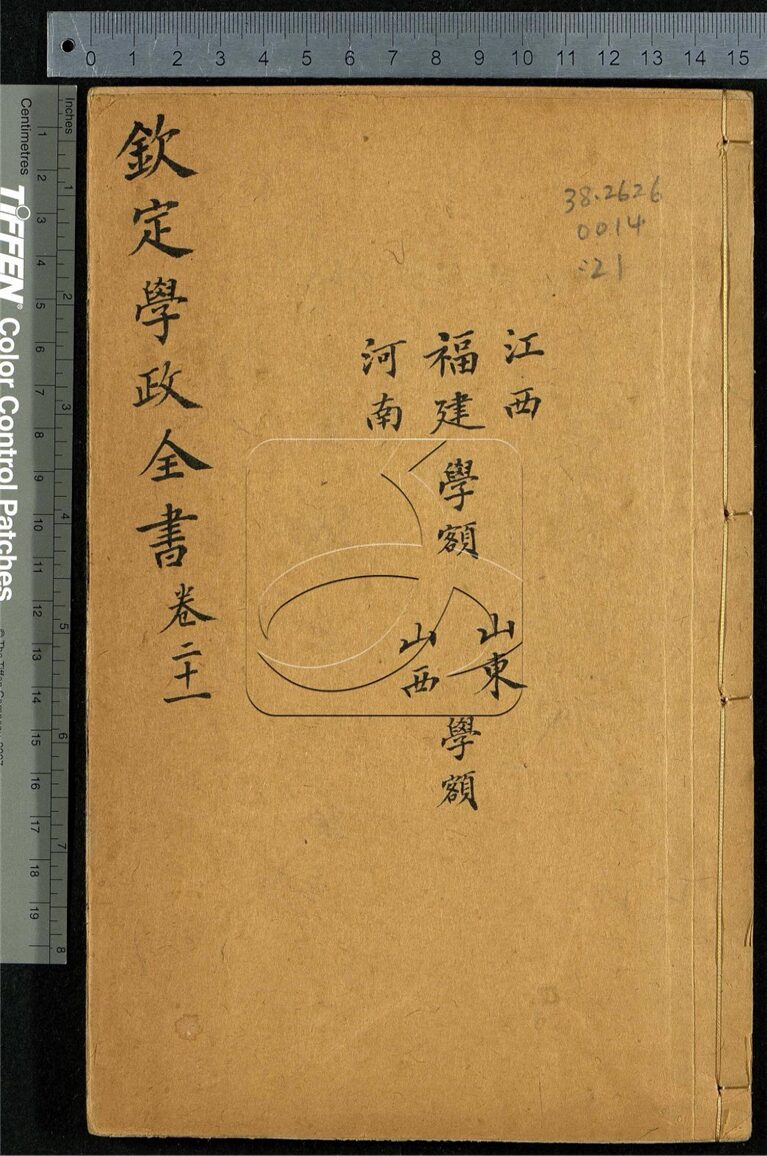 0 1 2 3 4 5 6 7 8 9 10 11 12 13 14 15
Inches
1 2 3 4 5 6 7 8
Centimetres
1 2 3 4 5 6 7 8 9 10 11 12 13 14 15 16 17 18 19
TIFFEN® Color Control Patches
38.2626
0014
:21
江西
福建
河南
學額
山東
山西
學額
欽定學政全書卷二十一